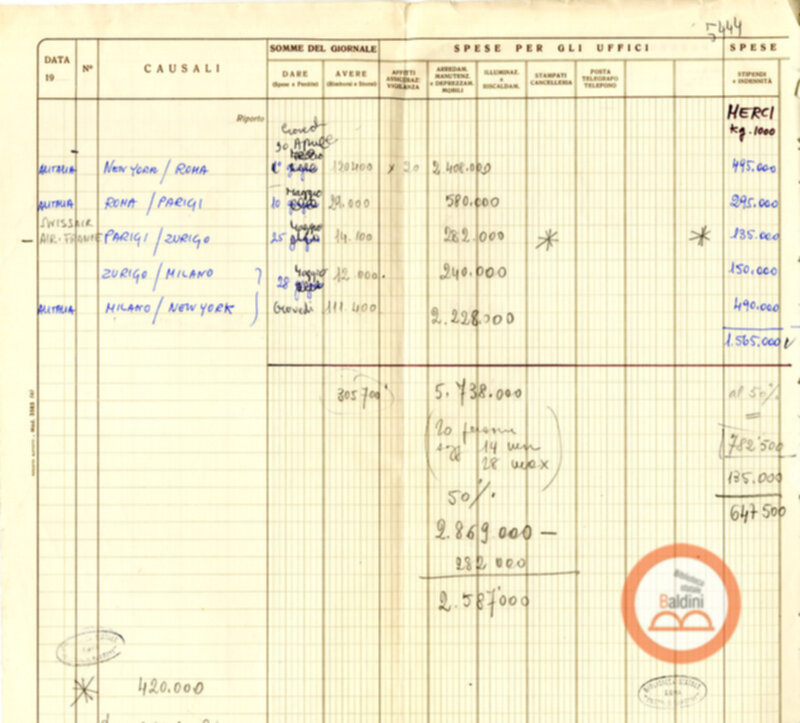 5444
DATA
19
N°
CAUSALI
SOMME DEL GIORNALE
DARE
(Spese e Perdite)
AVERE
(Rimborsi e Storni)
SPESE PER GLI UFFICI
AFFITTI
ASSICURAZ.
VIGILANZA
ARREDAM.
MANUTENZ.
e DEPREZZAM.
MOBILI
ILLUMINAZ.
e
RISCALDAM.
STAMPATI
CANCELLERIA
POSTA
TELEGRAFO
TELEFONO
SPESE
STIPENDI
e INDENNITÀ
Riporto
MERCI
kg. 1000
30 Aprile
ALITALIA NEW YORK / ROMA 120400 x 20 2.408.000 495.000
ALITALIA ROMA / PARIGI 10 Maggio 29.000 580.000 295.000
SWISSAIR
AIR-FRANCE PARIGI / ZURIGO 25 Maggio 14.100 282.000 * * 135.000
ZURIGO / MILANO 28 Maggio 12.000 240.000 150.000
ALITALIA MILANO / NEW YORK Giovedì 111.400 2.228.000 490.000
1.565.000
305700 5.738.000 al 50%
20 persone
14 min
28 max
782'500
50%
135.000
2.869.000 —
647 500
282 000
2.587'000
Biblioteca
statale
Baldini
* 420.000
BIBLIOTECA STATALE
ROMA